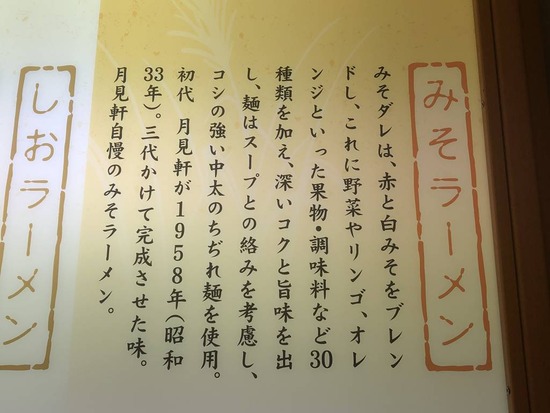 みそラーメン
みそダレは、赤と白みそをブレン
ドし、これに野菜やリンゴ、オレ
ンジといった果物・調味料など30
種類を加え、深いコクと旨味を出
し、麺はスープとの絡みを考慮し、
コシの強い中太のちぢれ麺を使用。
初代 月見軒が1958年(昭和
33年)。三代かけて完成させた味。
月見軒自慢のみそラーメン。
しおラーメン